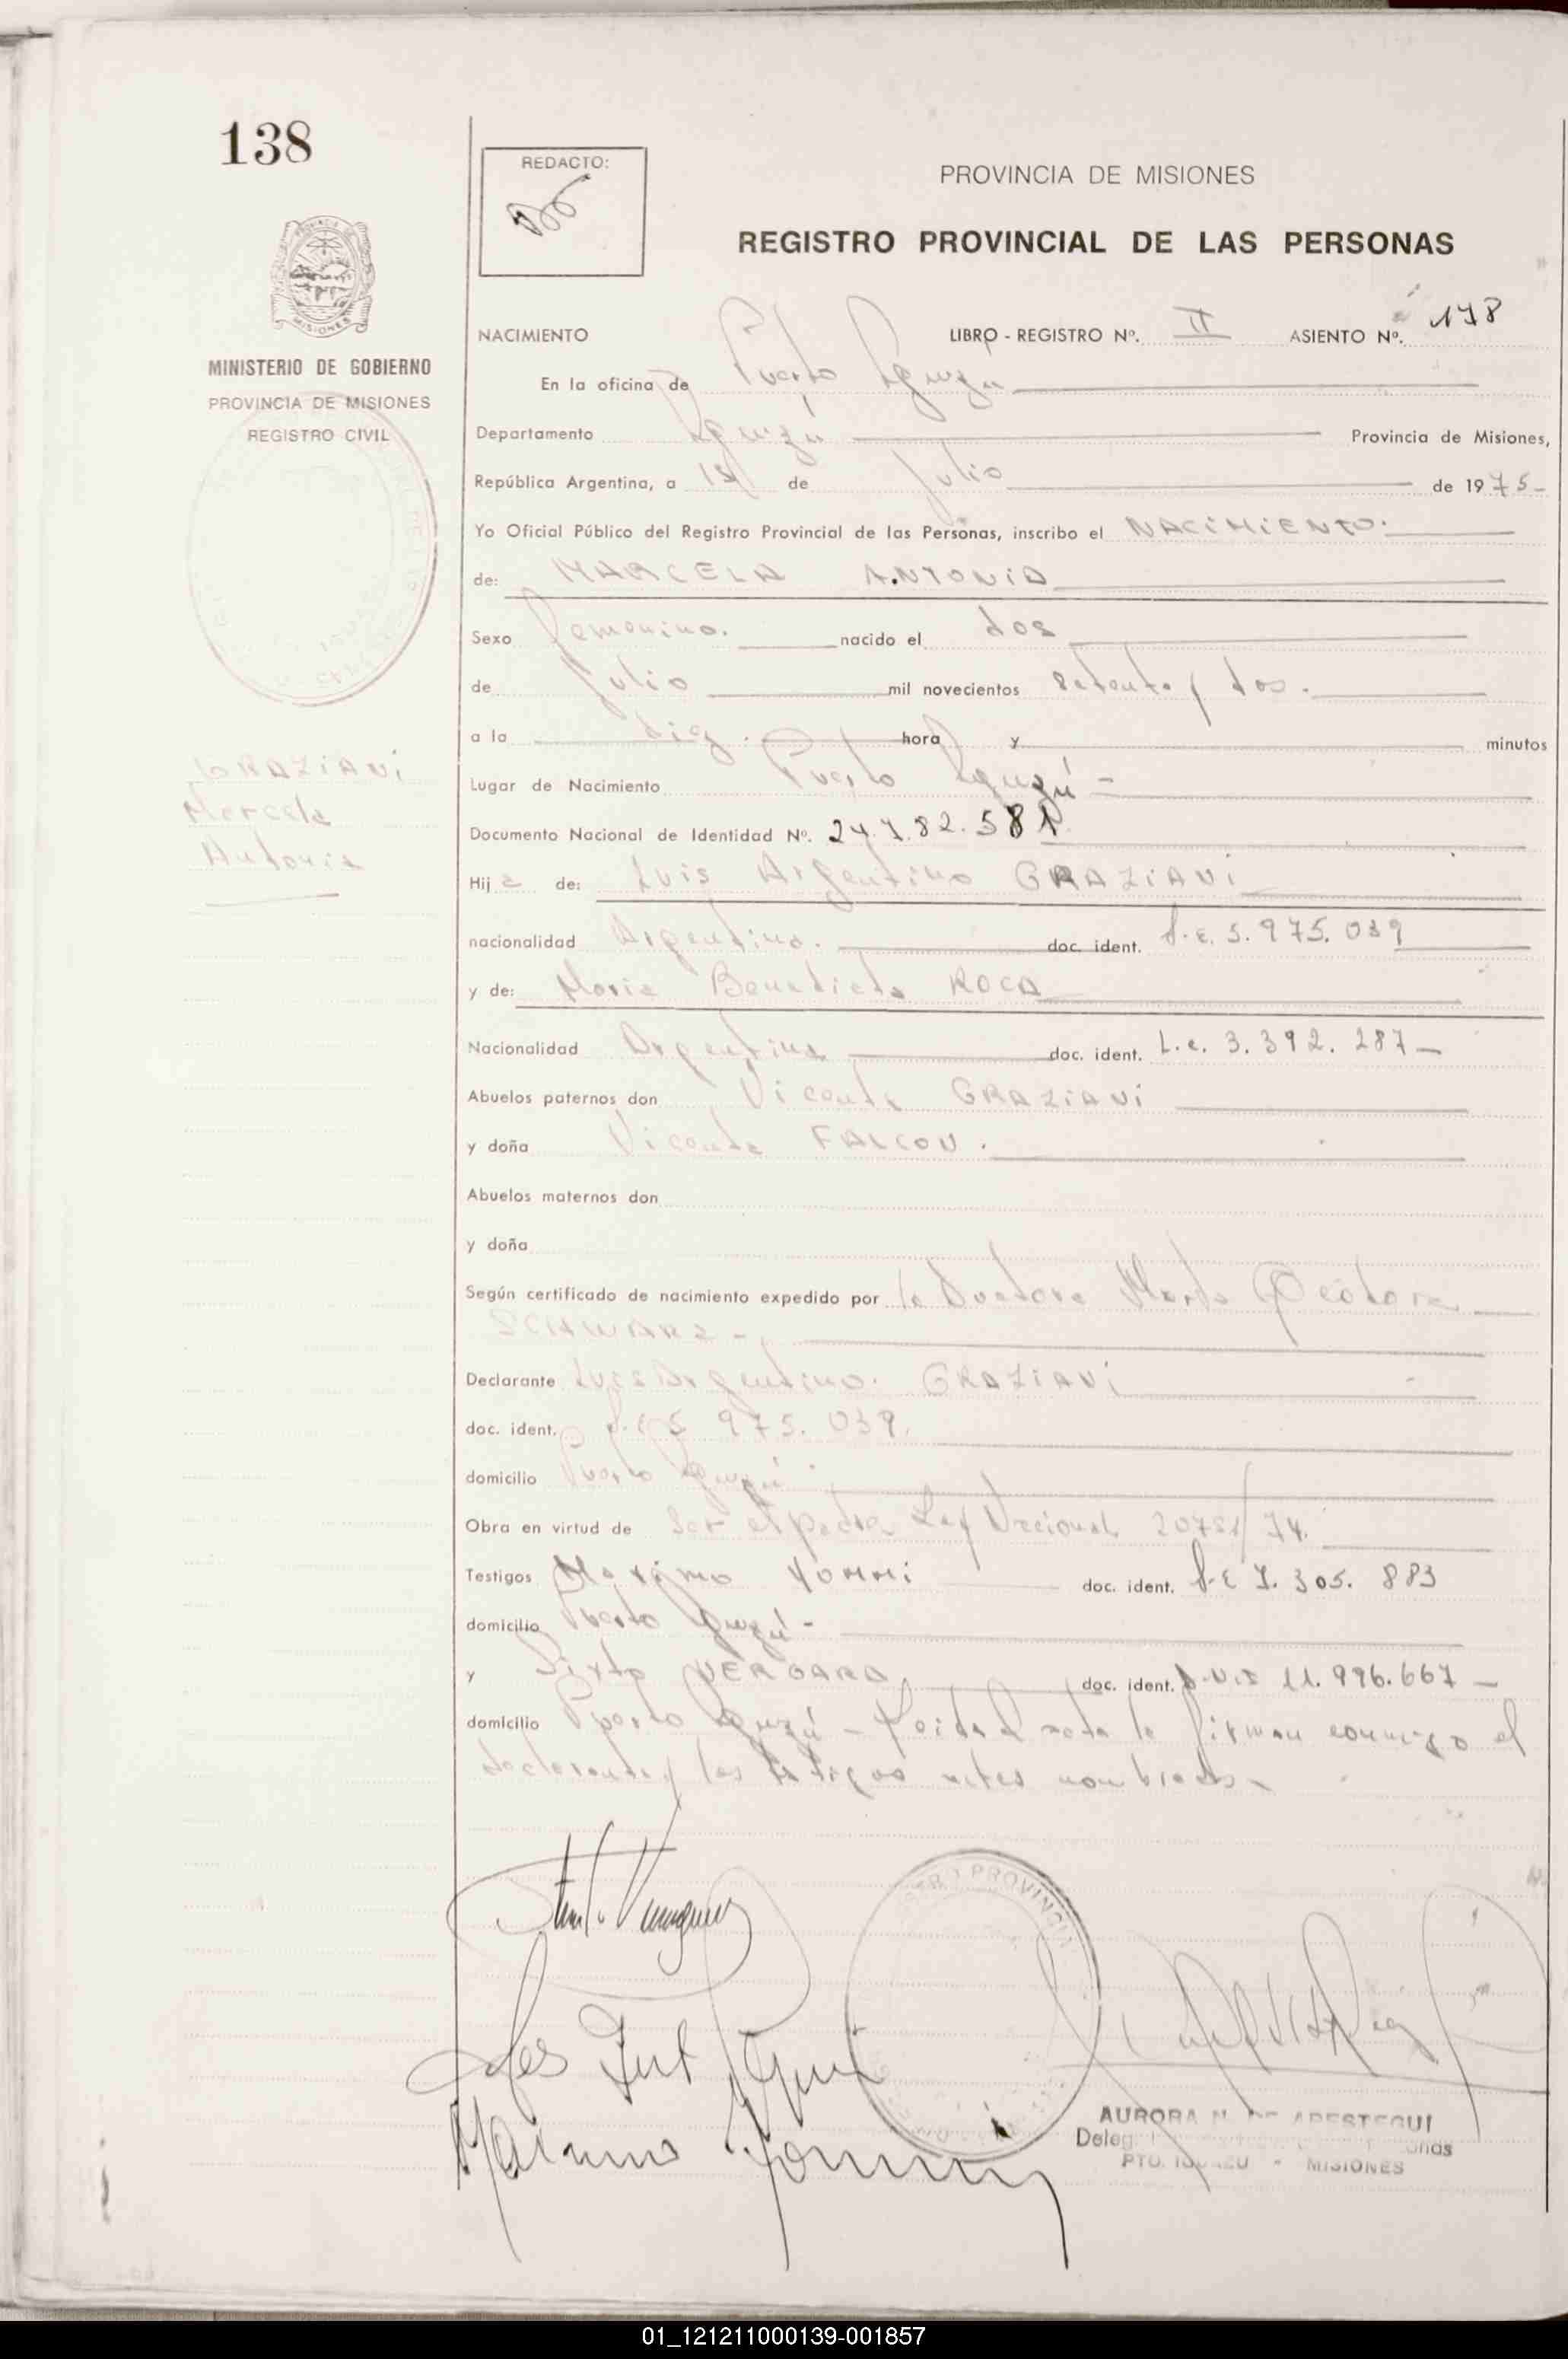 138
REDACTO:
PROVINCIA DE MISIONES
REGISTRO PROVINCIAL DE LAS PERSONAS
MISIONES
MINISTERIO DE GOBIERNO
PROVINCIA DE MISIONES
REGISTRO CIVIL
NACIMIENTO LIBRO - REGISTRO Nº. II ASIENTO Nº. 178
En la oficina de Puerto Iguazu
Departamento Iguazú Provincia de Misiones,
República Argentina, a de Julio de 1975-
Yo Oficial Público del Registro Provincial de las Personas, inscribo el NACIMIENTO.
de: MARCELA ANTONIA
Sexo Femenino. nacido el dos
de Julio mil novecientos setenta y dos.
a la diez. hora y minutos
GRAZIANI
Marcela
Antonia
Lugar de Nacimiento Puerto Iguazú -
Documento Nacional de Identidad Nº. 24.782.581
Hija de: Luis Argentino GRAZIANI
nacionalidad Argentino. doc. ident. L.E. 5.975.039
y de: Maria Benedicta ROCA
Nacionalidad Argentina doc. ident. L.c. 3.392.287-
Abuelos paternos don Vicente GRAZIANI
y doña Vicenta FALCON.
Abuelos maternos don
y doña
Según certificado de nacimiento expedido por la Doctora Marta Teodora
SCHWARZ -
Declarante Luis Argentino. GRAZIANI
doc. ident. L.E 5 975.039.
domicilio Puerto Iguazú
Obra en virtud de Ser el padre Ley Nacional 20751/74.
Testigos Maximo TOMMI doc. ident. L.E 7.305.883
domicilio Puerto Iguazú -
y Sixto VERGARA doc. ident. D.N.I 11.996.667 -
domicilio Puerto Iguazú - Leida el acta la firman conmigo el
declarante y los testigos antes nombrados
REGISTRO PROVINCIAL
AURORA M. DE ARESTEGUI
PTO. IGUAZU - MISIONES
01_121211000139-001857